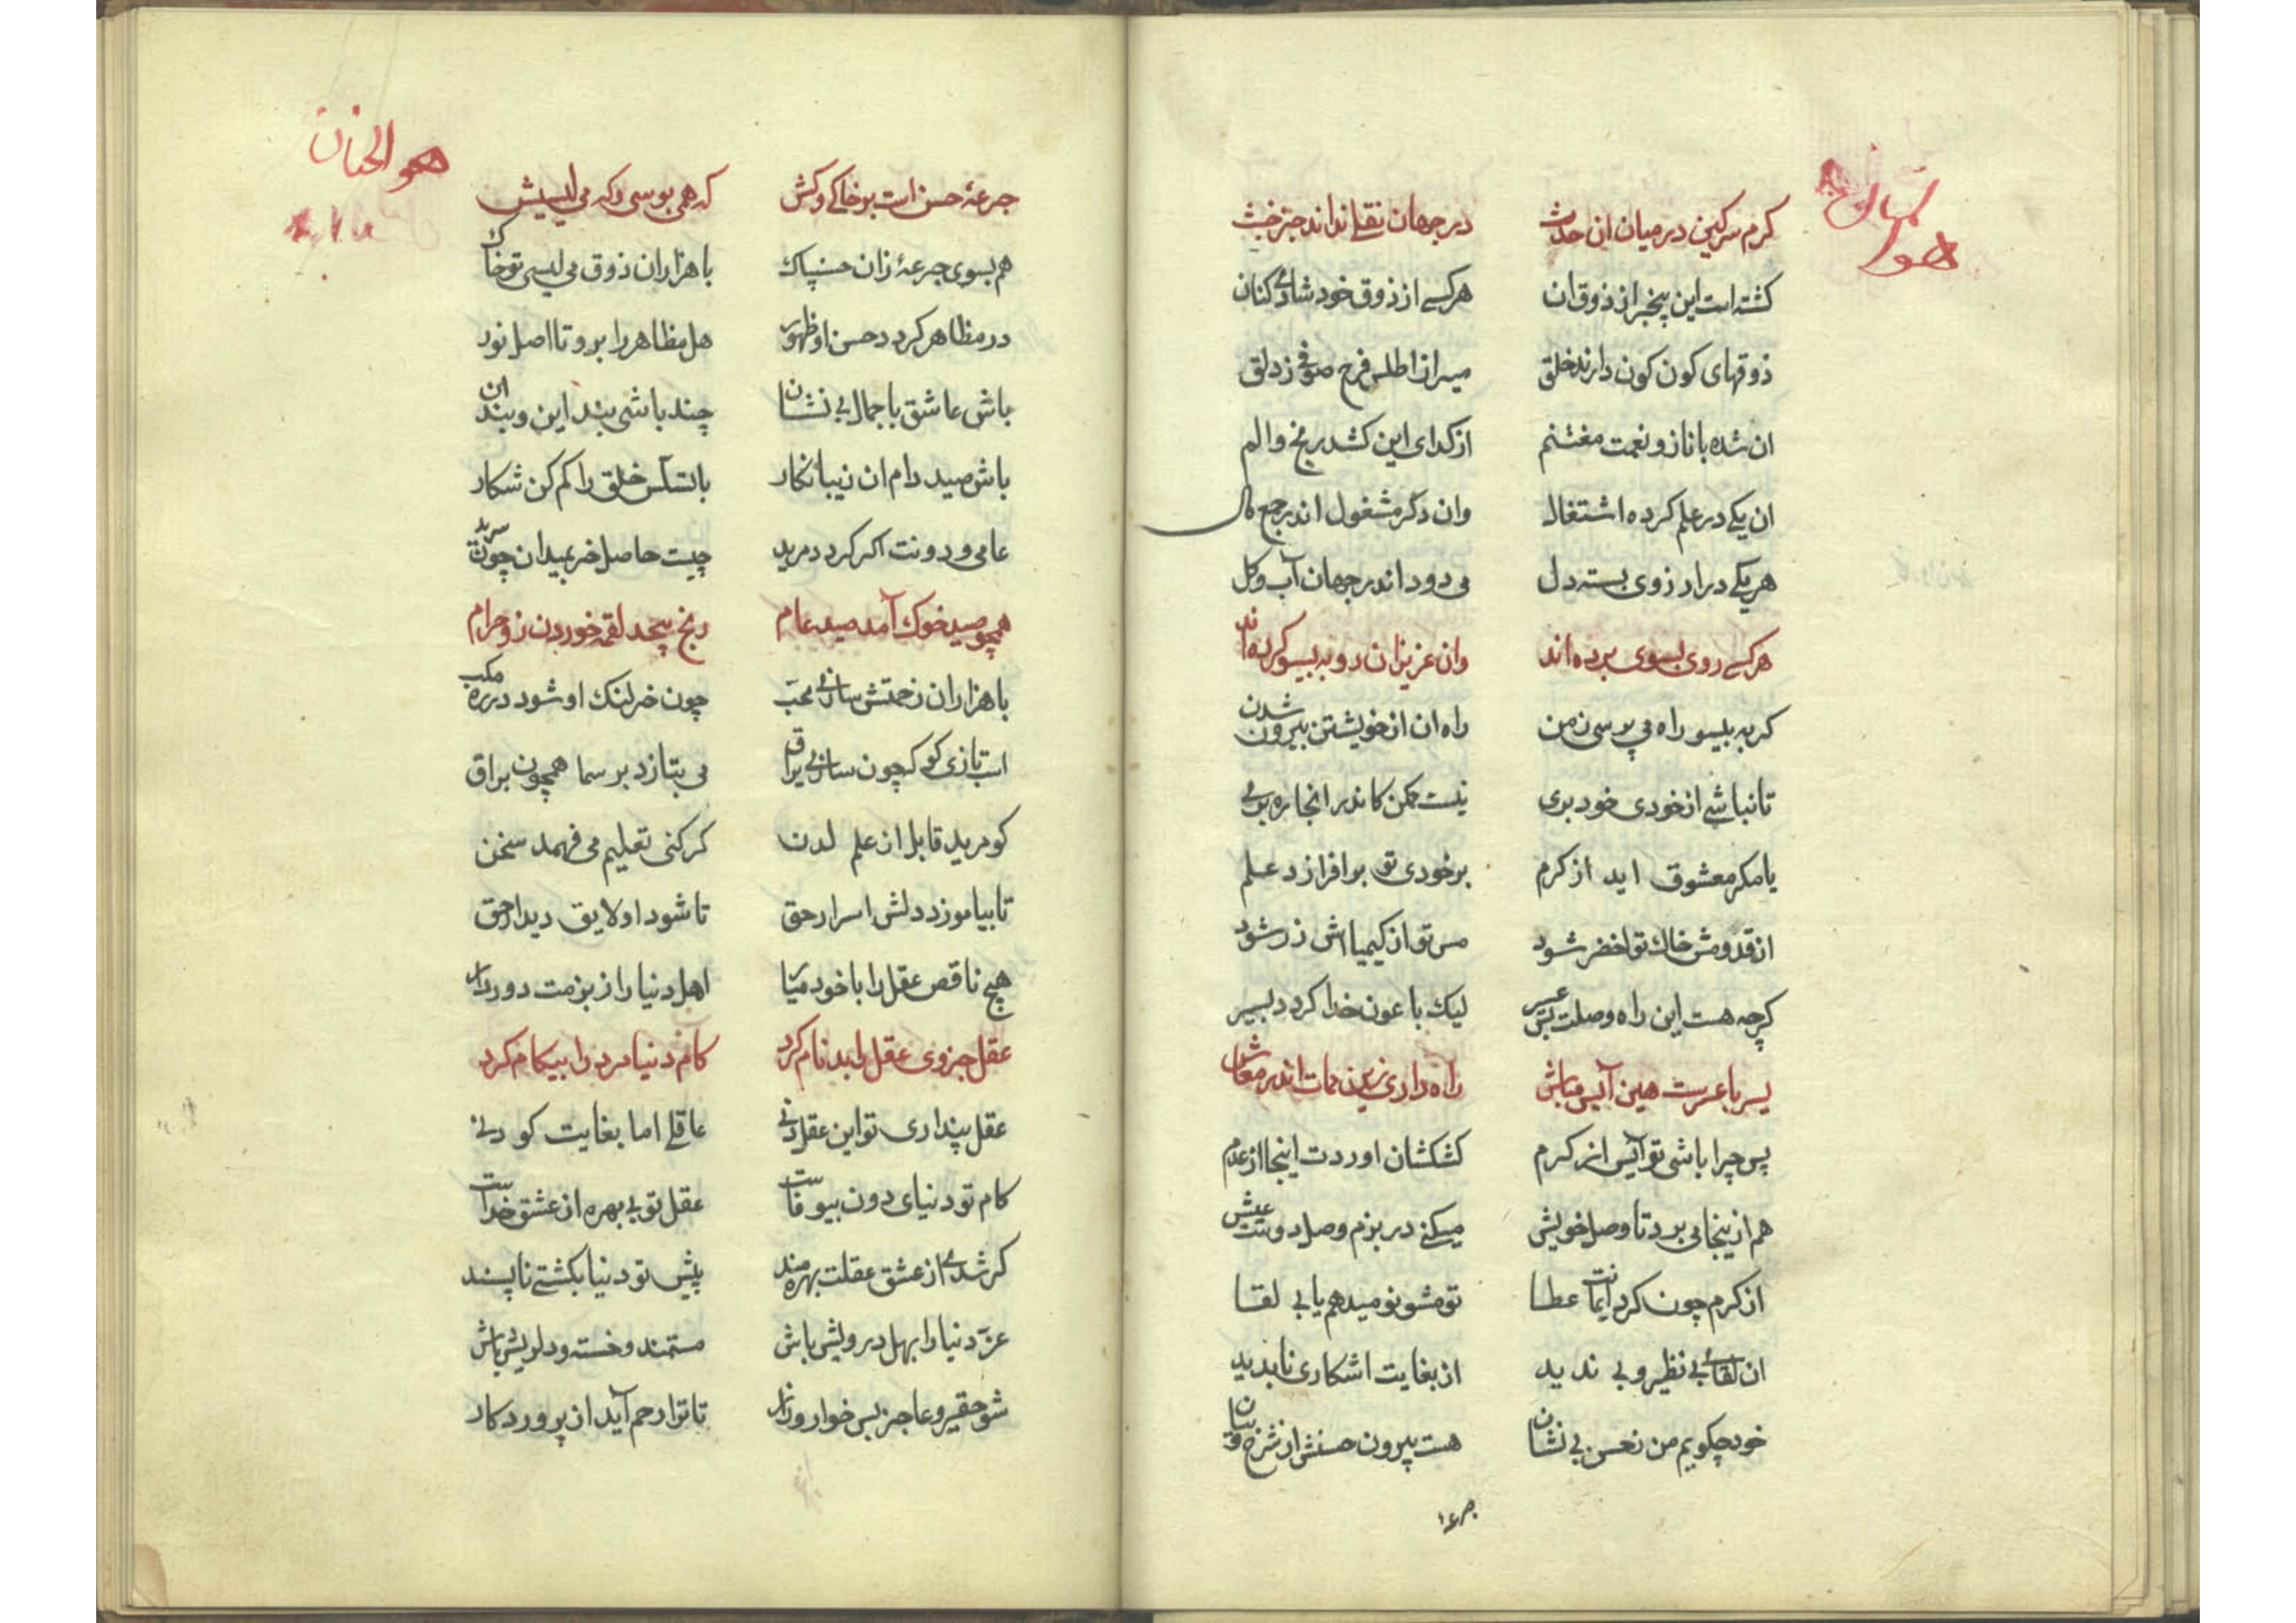 هو
کرم سرکین در میان ان حدث    در جهان نقلی نداند جز خبث
کشته است این بیخبر از ذوق ان    هر کسے از ذوق خود شادی کنان
ذوقهای کون کون دارند خلق    میر از اطلس فرح صوفی ز دلق
ان شده با ناز و نعمت مغتنم    از کدای این کشد رنج و الم
ان یکے در علم کرده اشتغال    وان دکر مشغول اندر جمع مال
هر یکے در ار زوی بسته دل    می دود اندر جهان آب و کل
هر کسے روی بسوی برده اند    وان عزیزان رو به بیسو کرده اند
کر به بیسو راه می پرسی ز من    راه ان از خویشتن بیرون شدن
تا نباشے از خودی خود بری    نیست ممکن کاندر انجا ره بری
یا مکر معشوق اید از کرم    بر خودی تو بر افرازد علم
از قدومش خاک تو اخضر شود    مس تو از کیمیااش زر شود
کرچه هست این راه وصلت بس عسیر    لیک با عون خدا کردد یسیر
یسر با عسرست هین آیس مباش    راه داری زین ممات اندر معاش
پس چرا باشی تو آیس از کرم    کشکشان اوردت اینجا از عدم
هم از ینجا می برد تا وصل خویش    میکنے در بزم وصل دوست عیش
از کرم چون کرد ایمانت عطا    تو مشو نومید هم یابی لقا
ان لقائے بی نظیر و بی ندید    از بغایت اشکاری نابدید
خود چکویم من ز حسن بی نشان    هست بیرون حسنش از شرح و بیان
جرعهٔ
هو الحنان
جرعهٔ حسن است بر خاکے و کش    که همی بوسی و که می لیسیش
هم بسوی جرعهٔ زان حسن پاک    با هزاران ذوق می لیسی تو خاک
در مظاهر کرد حسن او ظهور    هل مظاهر را برو تا اصل نور
باش عاشق با جمال بی نشان    چند باشی بند این و بند ان
باش صید دام ان زیبا نکار    با تسلس خلق را کم کن شکار
عامی و دونت اکر کردد مرید    چیست حاصل خر بمیدان چون
همچو صید خوک آمد صید عام    رنج بیحد لقمه خوردن زو حرام
با هزاران زحمتش سازی محب    چون خر لنک او شود در ره مکب
اسب تازی کو که چون سازی یراق    می بتازد بر سما همچون براق
کو مرید قابل از علم لدن    کر کنی تعلیم می فهمد سخن
تا بیاموزد دلش اسرار حق    تا شود او لایق دیدار حق
هیچ ناقص عقل را با خود میار    اهل دنیا را ز بزمت دور دار
عقل جزوی عقل را بدنام کرد    کام دنیا مرد را بیکام کرد
عقل پنداری تو این عقل دنی    عاقلے اما بغایت کودنے
کام تو دنیای دون بیوفاست    عقل تو بی بهره از عشق خداست
کر شدے از عشق عقلت بهره مند    پیش تو دنیا بکشتے ناپسند
عز دنیا را بهل درویش باش    مستمند و خسته و دلریش باش
شو حقیر و عاجز بس خوار و زار    تا ترا رحم آید از پروردکار